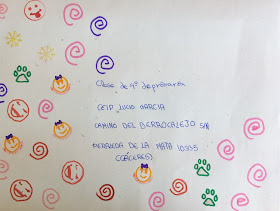 Clase de 4º de primaria
CEIP LUCIO GARCIA
CAMINO DEL BERROCALEJO S/N
PERALEDA DE LA MATA 10335
(CÁCERES)